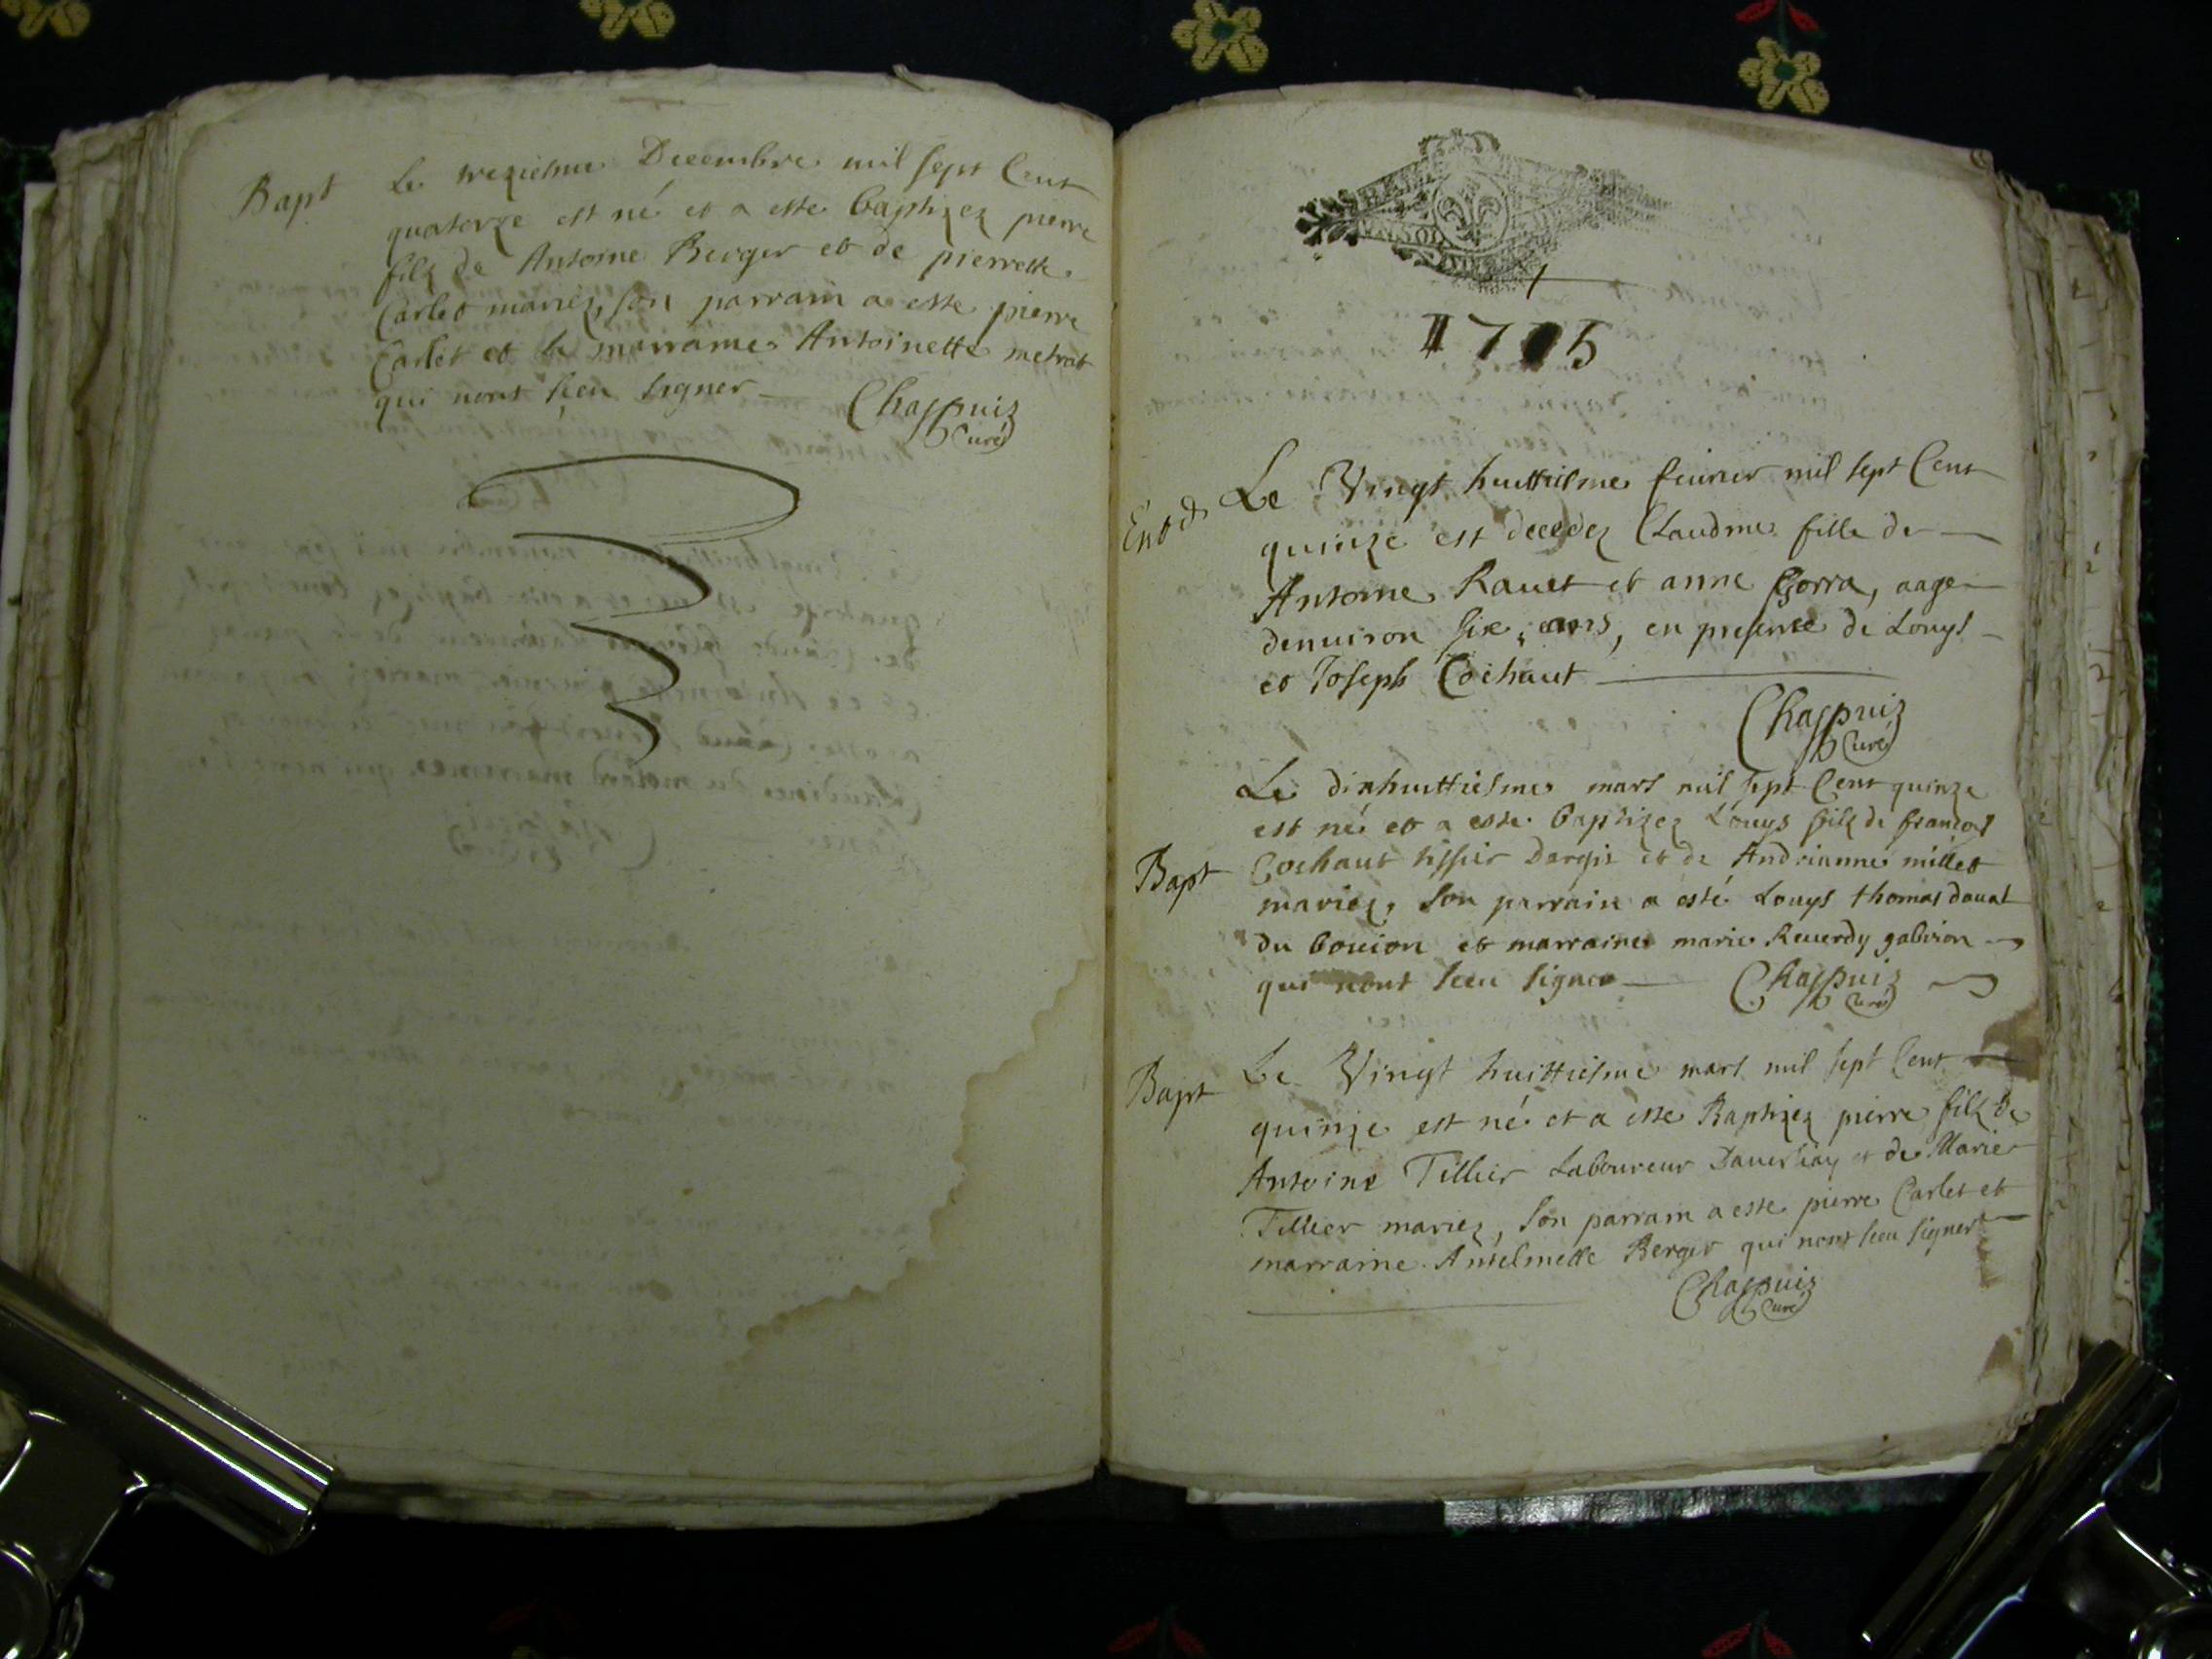 Bapt
Le treziesme Decembre mil sept Cent
quatorze est né et a este baptizez pierre
filz de Antoine Berger et de pierrette
Carlet mariez, son parrain a este pierre
Carlet et la marraine Antoinette metrat
qui nont sceu signer
Chappuiz
Curé
1715
Le Vingt huittiesme feurier mil sept Cent
quinze est decedez Claudine fille de
Antoine Rauet et anne Gorra, aage
denuiron six ans, en presence de Louys
et Joseph Cochaut
Chappuiz
Curé
Bapt
Le dixhuittiesme mars mil sept Cent quinze
est né et a este baptizez Louys filz de françois
Cochaut tissier Dargis et de Andrianne millet
mariez, son parrain a esté Louys thomas dauat
du bouion et marraine marie Reuerdy gabison
qui nont sceu signer
Chappuiz
Curé
Bapt
Le Vingt huittiesme mars mil sept Cent
quinze est né et a este Baptizez pierre filz de
Antoine Tillier Laboureur Dauersiay et de Marie
Tillier mariez, son parrain a este pierre Carlet et
marraine Anselmette Berger qui nont sceu signer
Chappuiz
Curé